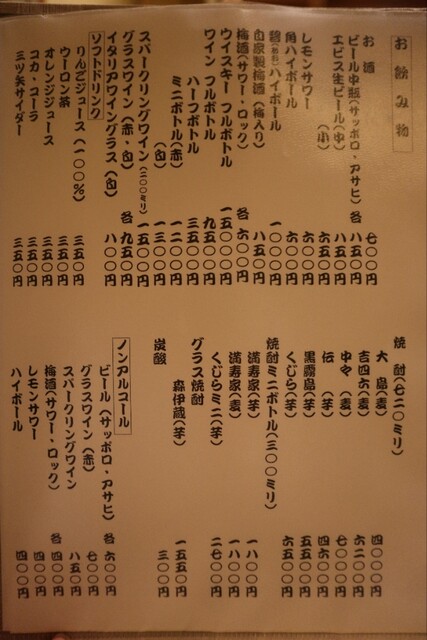 お飲み物
お酒 七〇〇円
ビール中瓶(サッポロ・アサヒ) 各 八五〇円
エビス生ビール(中) 八五〇円
(小) 六五〇円
レモンサワー 六〇〇円
角ハイボール 六〇〇円
碧(あお)ハイボール 一〇〇〇円
自家製梅酒(梅入り) 八五〇円
梅酒(サワー・ロック) 各 六〇〇円
ウイスキー フルボトル 一五〇〇〇円
ワイン フルボトル 九五〇〇円
ハーフボトル 三五〇〇円
ミニボトル(赤) 一二〇〇円
(白) 一三〇〇円
スパークリングワイン(二〇〇ミリ) 一五〇〇円
グラスワイン(赤・白) 各 九五〇円
イタリアワイングラス(白) 八〇〇円
ソフトドリンク
りんごジュース(一〇〇%) 三五〇円
ウーロン茶 三五〇円
オレンジジュース 三五〇円
コカ・コーラ 三五〇円
三ツ矢サイダー 三五〇円
焼酎(七二〇ミリ)
大島(芋) 四〇〇〇円
吉四六(麦) 六二〇〇円
中々(麦) 七〇〇〇円
伝(芋) 四六〇〇円
黒霧島(芋) 五五〇〇円
くじら(芋) 六五〇〇円
焼酎ミニボトル(三〇〇ミリ)
満寿家(芋) 一八〇〇円
満寿家(麦) 一八〇〇円
くじらミニ(芋) 二七〇〇円
グラス焼酎
森伊蔵(芋) 一五五〇円
炭酸 三〇〇円
ノンアルコール
ビール(サッポロ・アサヒ) 各 六〇〇円
グラスワイン(赤) 七〇〇円
スパークリングワイン 八五〇円
梅酒(サワー・ロック) 各 四〇〇円
レモンサワー 四〇〇円
ハイボール 四〇〇円